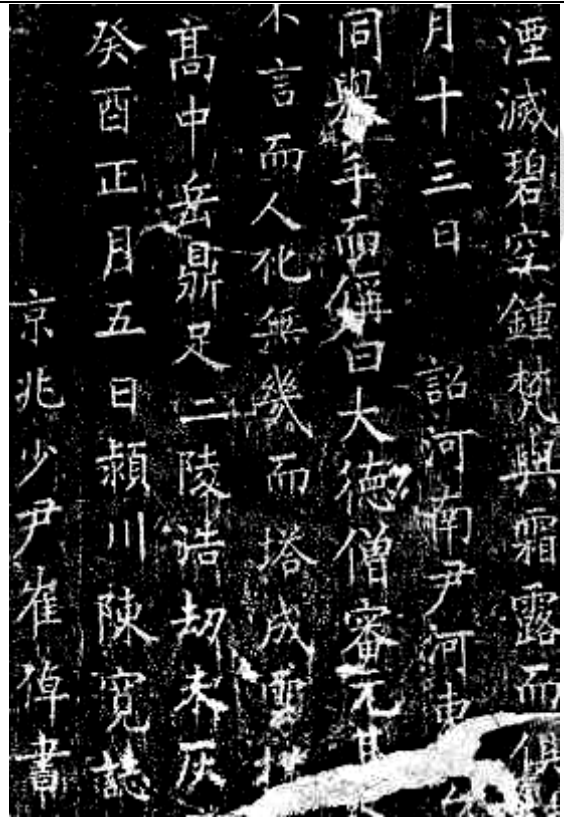 湮滅碧空鍾梵與霜露而俱
月十三日 詔河南尹河東
同舉手而稱曰大德僧審元其
不言而人化無幾而塔成雪
高中岳鼎足二陵浩劫未灰
癸酉正月五日潁川陳寬誌
京兆少尹崔倬書